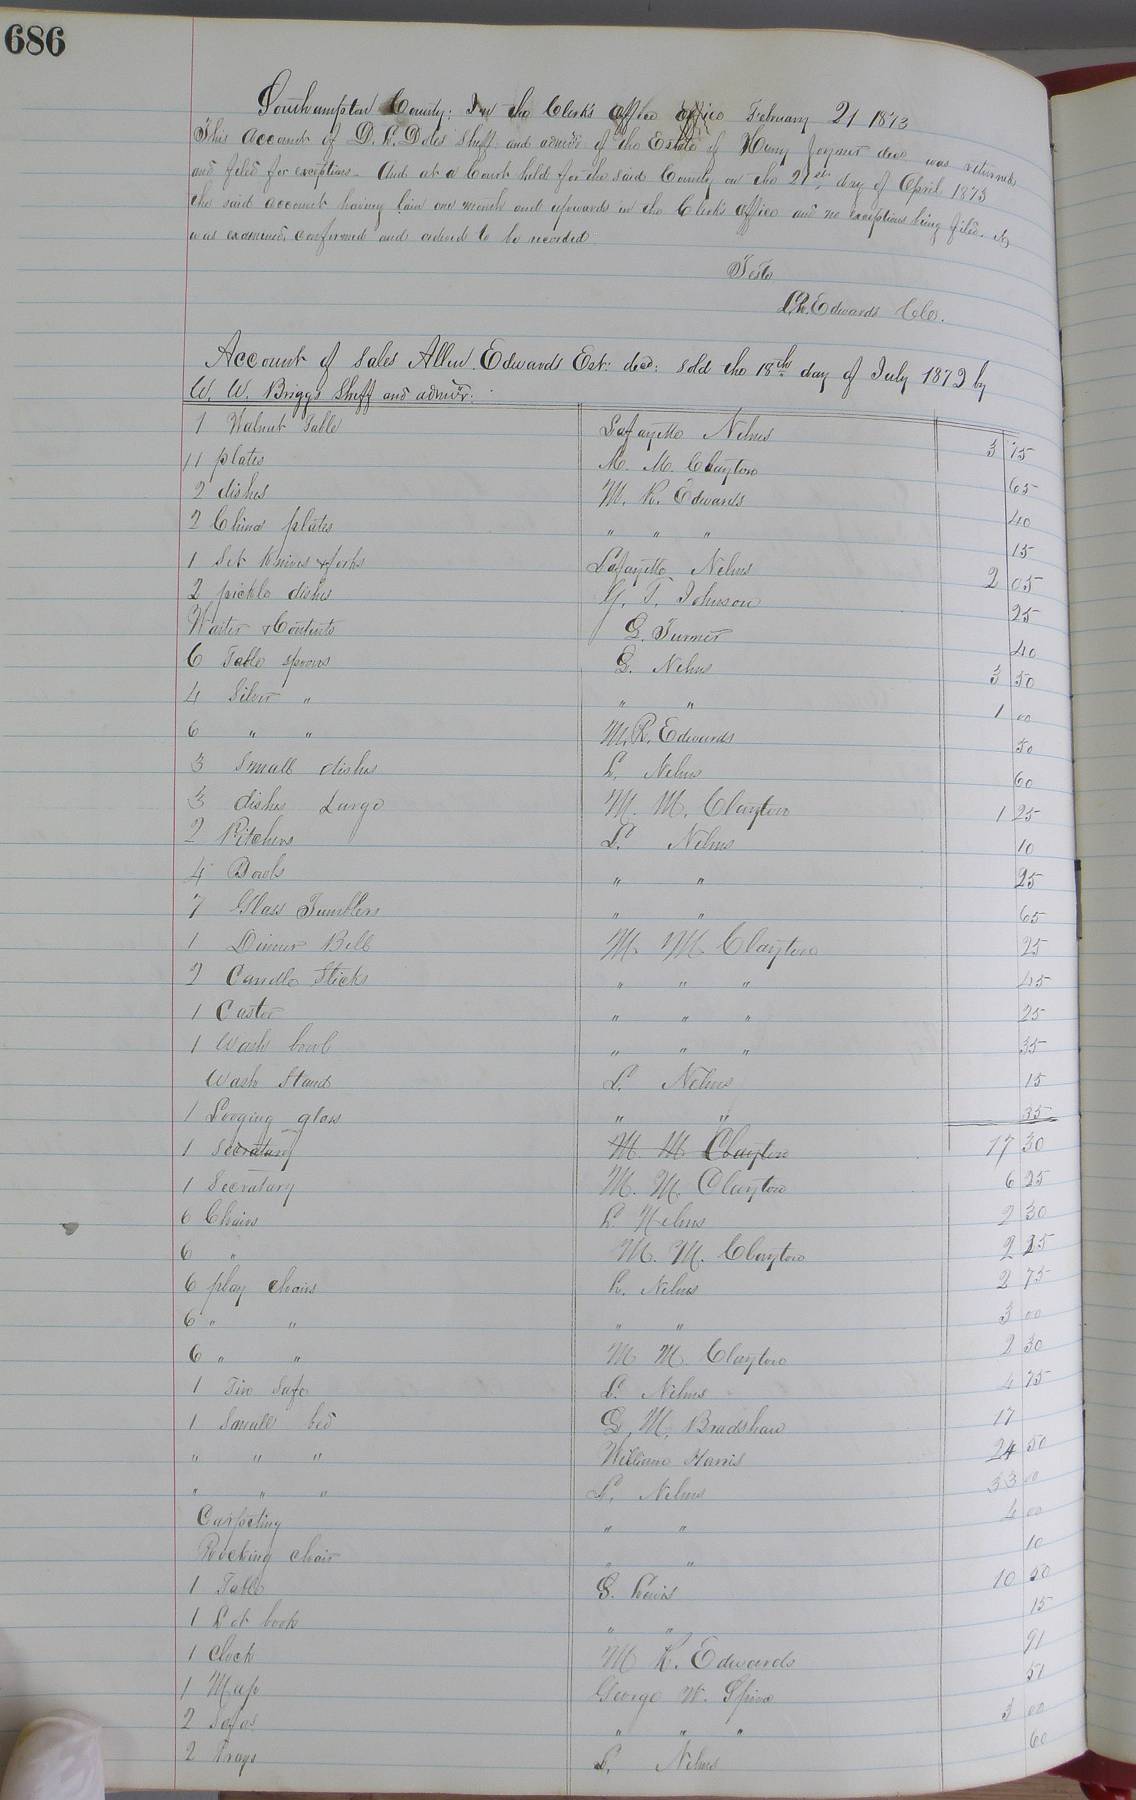 686
Southampton County; In the Clerk's office office February 21 1873
This account of D. L. Doles Sheff and admór of the Estate of Henry Joyner dec was returned
and filed for exceptions - And at a Court held for the said County on the 21st day of April 1873
the said account having lain one month and upwards in the Clerk's office and no exceptions being filed. It
was examined, confirmed and ordered to be recorded
Teste
Edwards Clk.
Account of Sales Allen Edwards Est: decd: sold the 18th day of July 1872 by
W. W. Briggs Sheff and admór:
1 Walnut Table Lafayette Nelms 3 75
11 plates M. M. Clayton 65
2 dishes M. R. Edwards 40
2 China plates " " " 15
1 Set Knives & forks Lafayette Nelms 2 05
2 pickle dishes T. Johnson 25
Waiter & Contents G. Turner 40
6 Table spoons Nelms 3 50
4 Silver " " " 1 00
6 " " M. R. Edwards 50
3 Small dishes L. Nelms 60
3 dishes Large M. M. Clayton 1 25
2 Pitchers L. Nelms 10
4 Bowls " " 25
7 Glass Tumblers " " 65
1 Dinner Bell M M Clayton 25
2 Candle Sticks " " " 45
1 Caster " " " 25
1 Wash bowl " " " 35
Wash Stand L. Nelms 15
1 Looging glass " " 35
1 Secratary M M Clayton 17 30
1 Secratary M. M. Clayton 6 25
6 Chairs L. Nelms 2 30
6 " M. M. Clayton 2 25
6 play chairs L. Nelms 2 75
6 " " " " 3 00
6 " " M M. Clayton 2 30
1 Tin Safe L. Nelms 4 75
1 Small bed G. M. Bradshaw 17
" " " William Harris 24 50
" " " L. Nelms 33 00
Carpeting " " 4 00
Rocking chair " " 10
1 Table Lewis 10 50
1 Lot book " " 15
1 Clock M R. Edwards 91
1 Map George W. Spivo 51
2 Sofas " " " 3 00
2 Trays L. Nelms 60